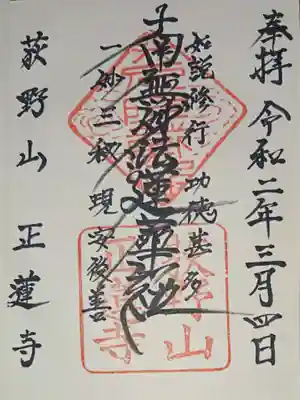 奉拝 令和二年三月四日
如説修行 功徳甚多
子
南無妙法蓮華経
一妙三秘 現安後善
荻野山 正蓮寺